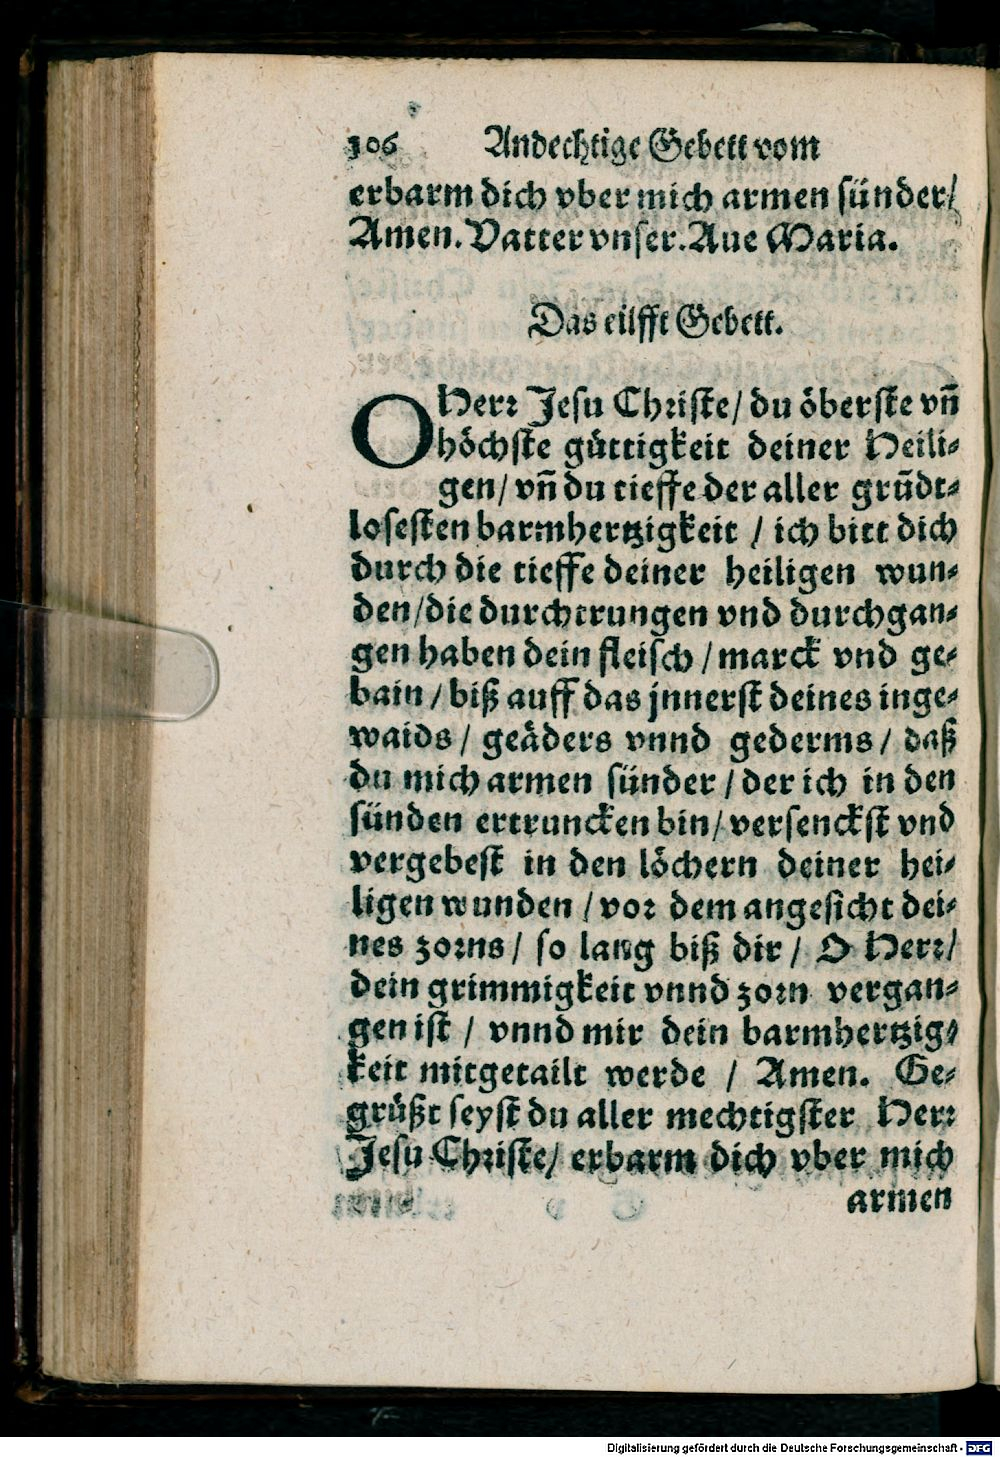 306 Andechtige Gebett vom
erbarm dich vber mich armen sünder/
Amen. Vatter vnser. Aue Maria.
Das eilfft Gebett.
O Herr Jesu Christe/ du öberste vñ
höchste güttigkeit deiner Heili-
gen/ vñ du tieffe der aller grũdt-
losesten barmhertzigkeit / ich bitt dich
durch die tieffe deiner heiligen wun-
den/die durchtrungen vnd durchgan-
gen haben dein fleisch / marck vnd ge-
bain / biß auff das jnnerst deines inge-
waids / geäders vnnd gederms / daß
du mich armen sünder / der ich in den
sünden ertruncken bin/ versenckst vnd
vergebest in den löchern deiner hei-
ligen wunden / vor dem angesicht dei-
nes zorns / so lang biß dir / O Herr/
dein grimmigkeit vnnd zorn vergan-
gen ist / vnnd mir dein barmhertzig-
keit mitgetailt werde / Amen. Ge-
grüßt seyst du aller mechtigster Herr
Jesu Christe/ erbarm dich vber mich
armen
Digitalisierung gefördert durch die Deutsche Forschungsgemeinschaft - DFG